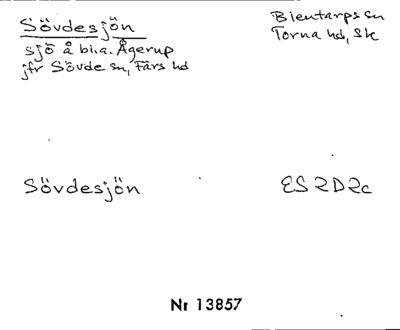 Sövdesjön
sjö å bl.a. Ågerup
jfr Sövde sn, Färs hd
Bjentarps sn
Torna hd, Sk
Sövdesjön
ES 2D2c
Nr 13857